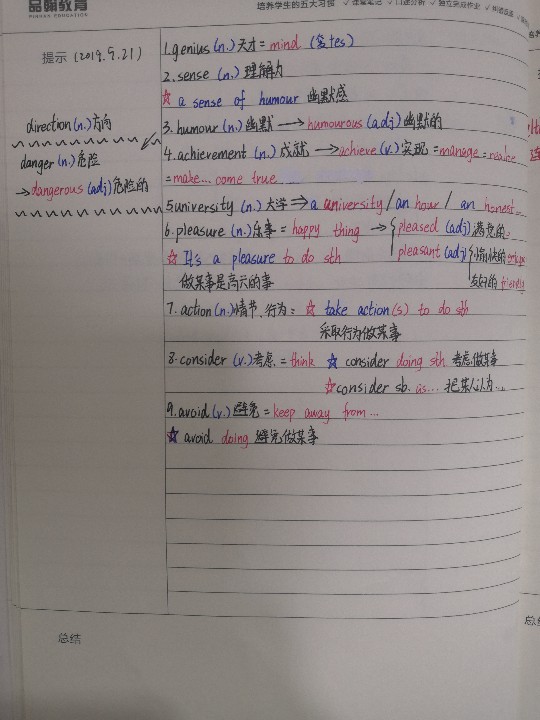 品翰教育
PINHAN EDUCATION
培养学生的五大习惯 √课堂笔记 √口述分析 √独立完成作业
提示 (2019.9.21)
direction (n.) 方向
danger (n.) 危险
→dangerous (adj) 危险的
1.genius (n.) 天才 = mind (变+es)
2.sense (n.) 理解力
☆ a sense of humour 幽默感
3.humour (n.) 幽默 → humourous (adj) 幽默的
4.achievement (n.) 成就 → achieve (v.) 实现 = manage = realize
= make... come true
5.university (n.) 大学 ⇒ a university / an hour / an honest
6.pleasure (n.) 乐事 = happy thing → pleased (adj) 满意的
pleasant (adj) 愉快的
☆ It's a pleasure to do sth
做某事是高兴的事
友好的 friendly
7.action (n.) 情节、行为: ☆ take action(s) to do sth
采取行为做某事
8.consider (v.) 考虑 = think ☆ consider doing sth 考虑做某事
☆ consider sb. as... 把某人认为...
9.avoid (v.) 避免 = keep away from...
☆ avoid doing 避免做某事
总结